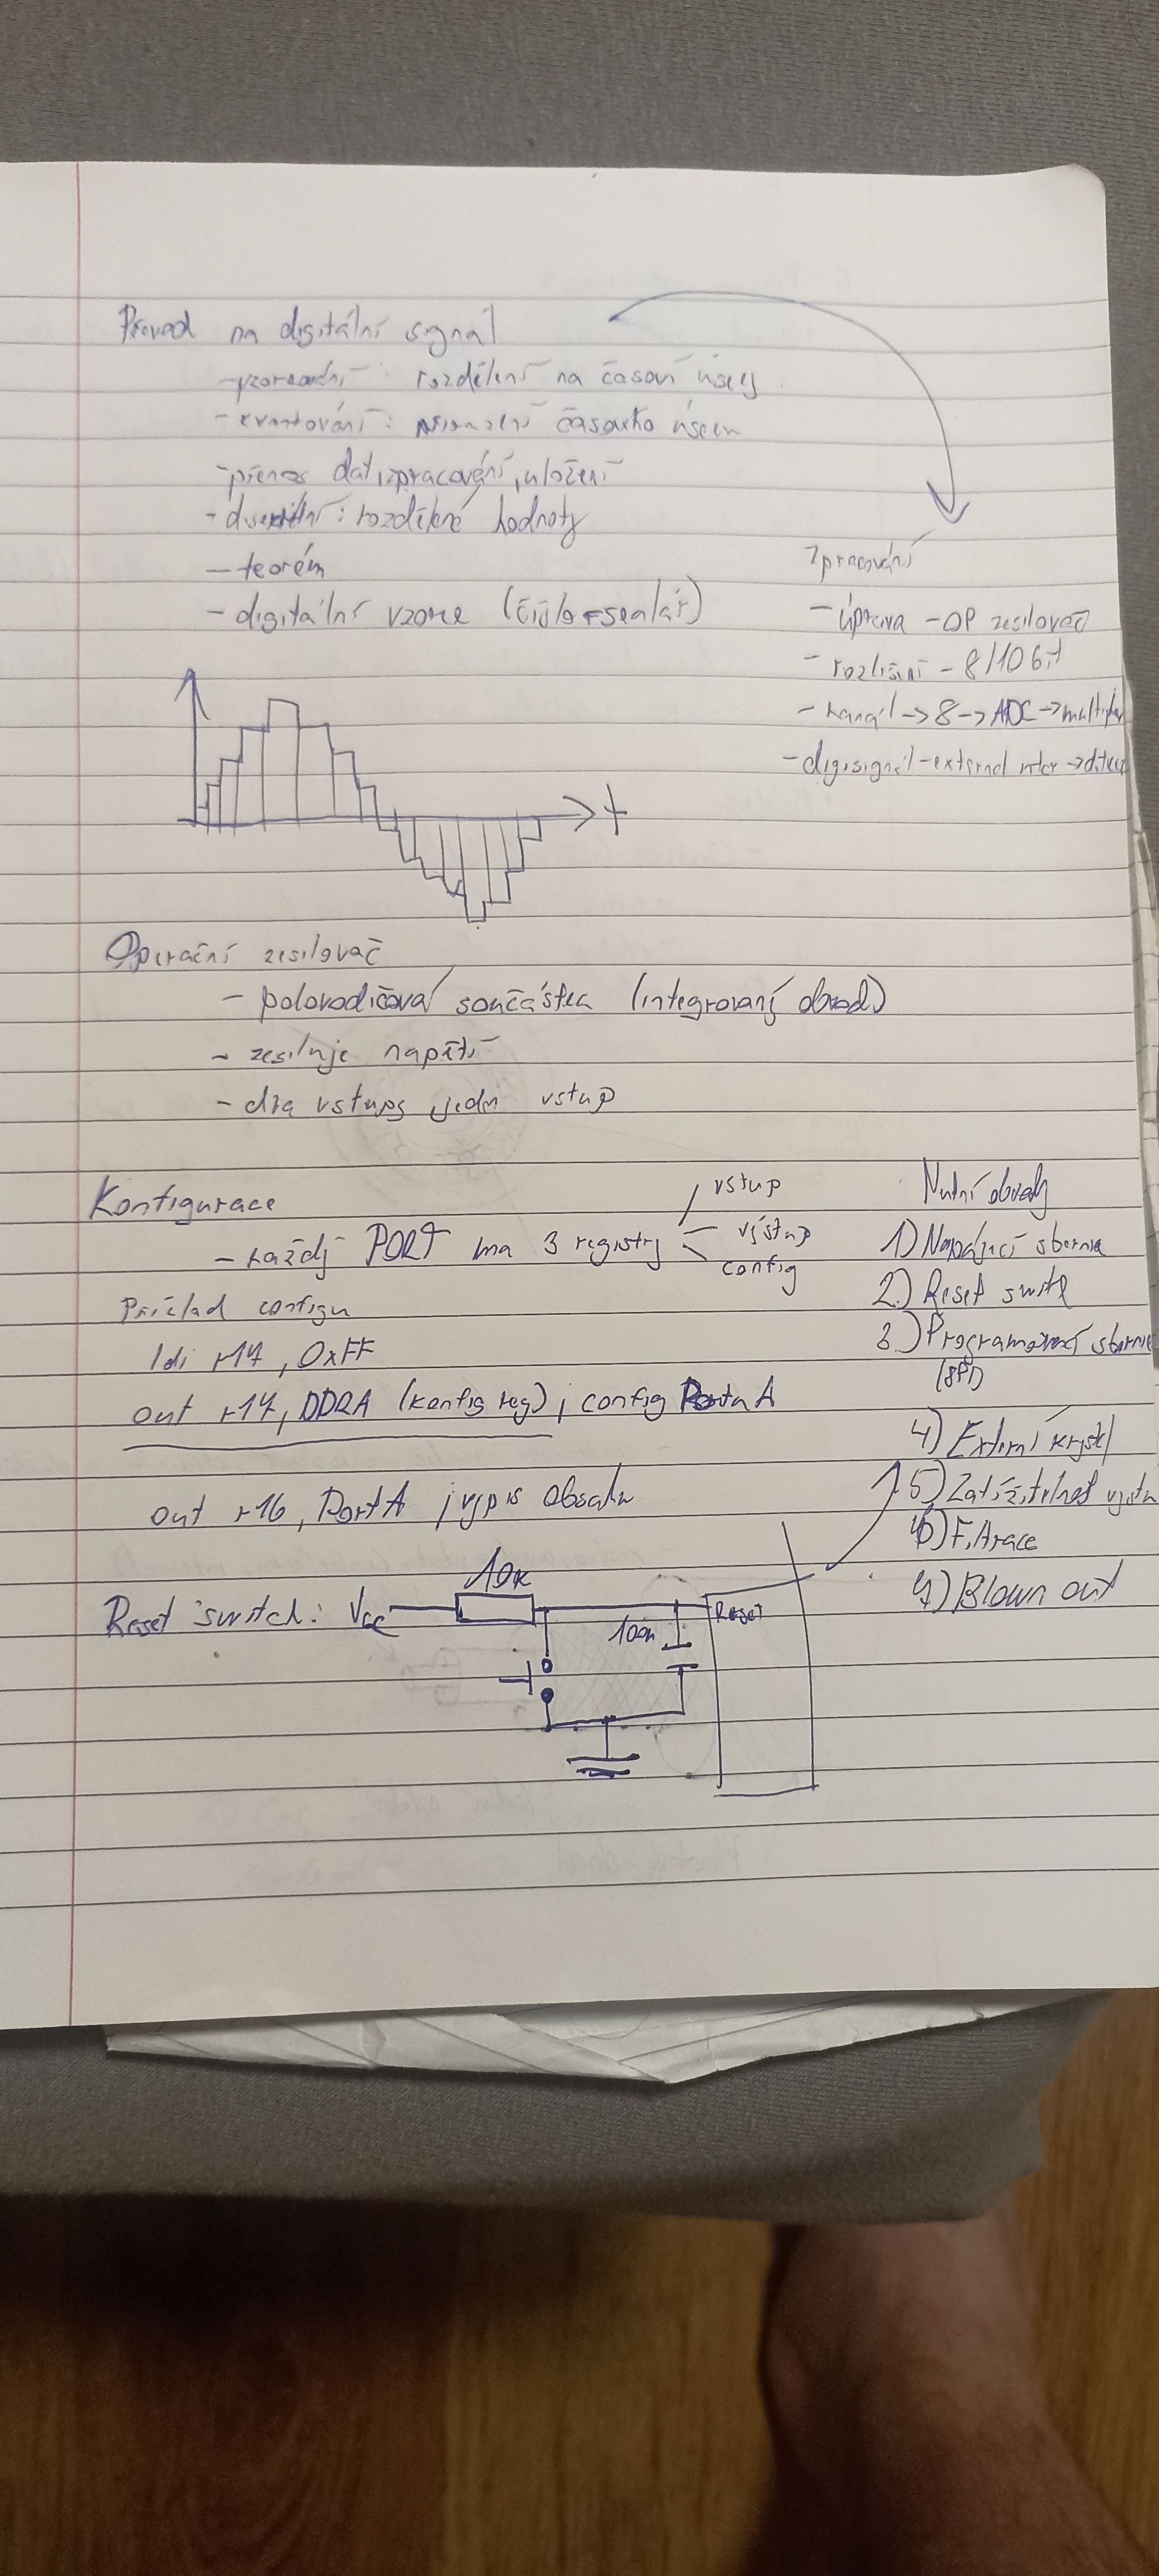 Převod na digitální signál
- vzorkování: rozdělení na časoví úseky
- kvantování: přiřazení časového úseku
- přenos dat, zpracování, uložení
- diskrétní: rozdělené hodnoty
- teorém
- digitální vzorce (číslo = skalár)
Zpracování
- úprava - OP zesilovač
- rozlišení - 8/10 bit
- kanál -> 8 -> ADC ->
- digi signál - external ->
t
Operační zesilovač
- polovodičová součástka (integrovaný obvod)
- zesiluje napětí
- dva vstupy jedn vstup
Konfigurace
- každý PORT ma 3 registry
vstup
výstup
config
Příklad configu
ldi r17, 0xFF
out r17, DDRA (konfig reg) ; config Portu A
out r16, Port A ; výpis obsahu
Nutní obvody
1) Napájecí sběrnice
2.) Reset switch
3.) Programovací sběrnice
(SPI)
4) Externí krystal
5) Zatížitelnost
6) Filtrace
7) Blown out
Reset switch: Vcc
10k
100n
Reset